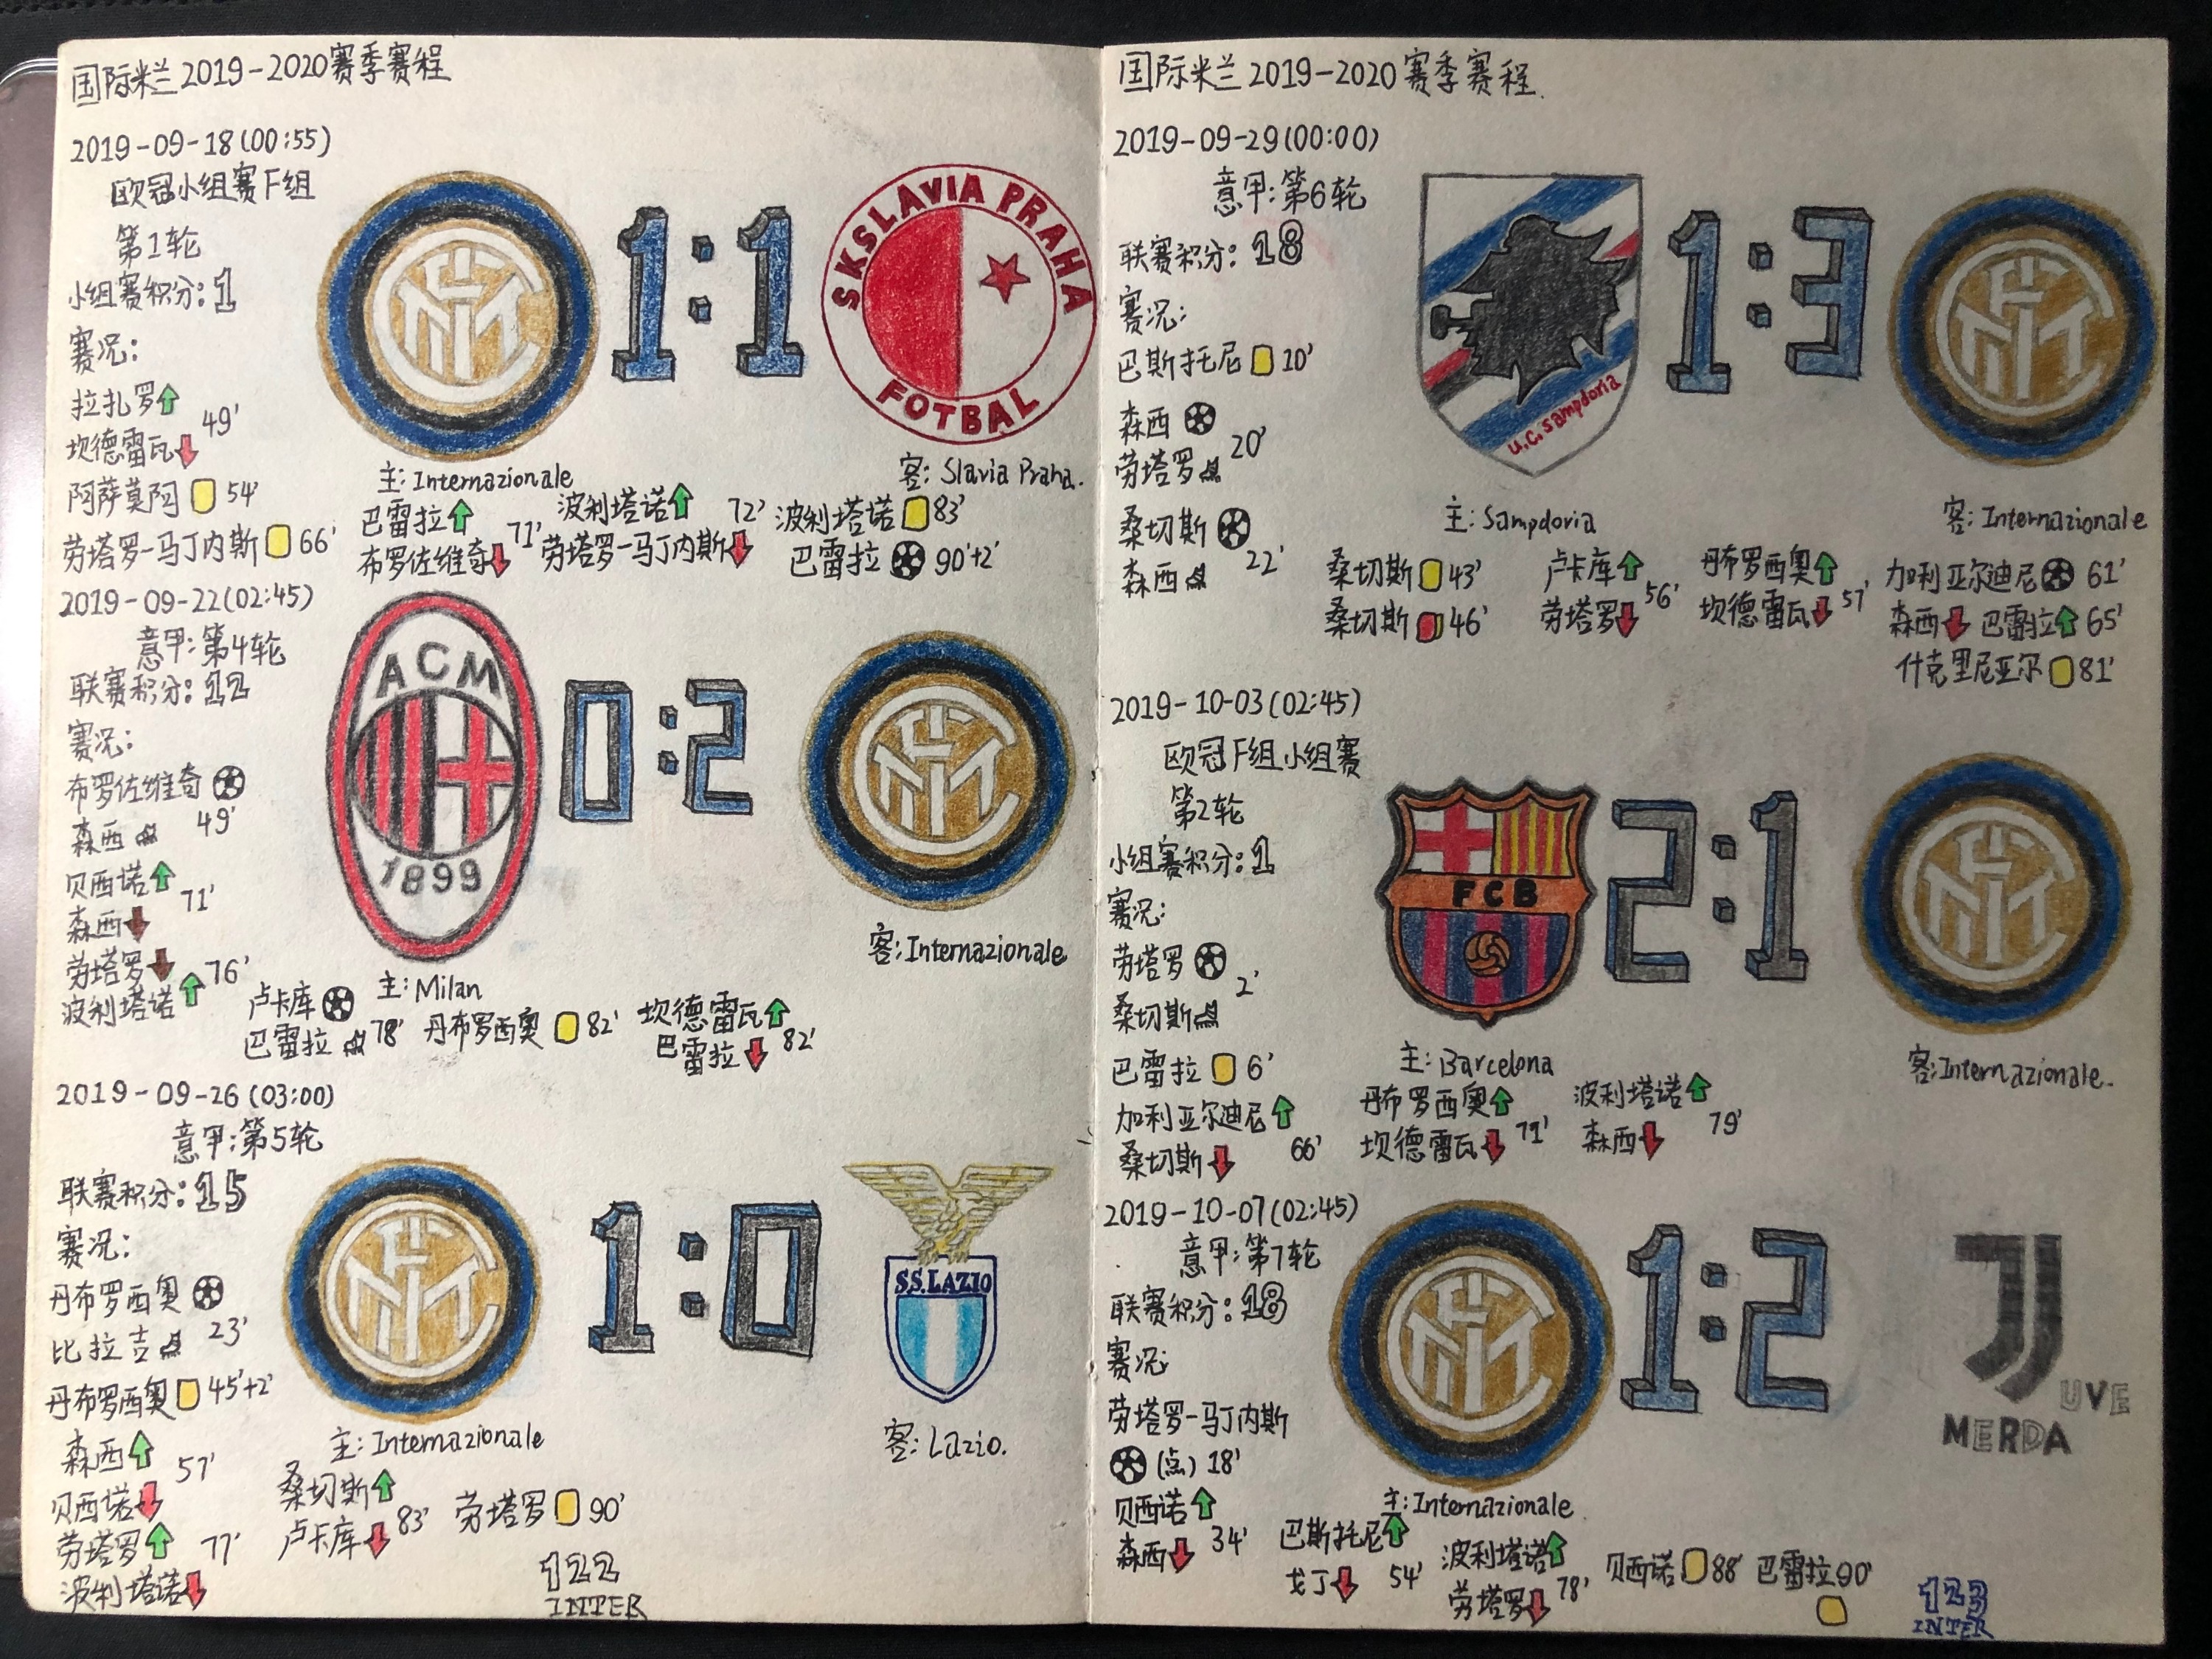 国际米兰2019-2020赛季赛程
2019-09-18(00:55)
欧冠小组赛F组
第1轮
小组赛积分:1
赛况:
拉扎罗
坎德雷瓦 49'
阿萨莫阿 54'
劳塔罗-马丁内斯 66'
1:1
SK SLAVIA PRAHA
FOTBAL
主: Internazionale
客: Slavia Praha.
巴雷拉
布罗佐维奇 71'
波利塔诺
劳塔罗-马丁内斯 72'
波利塔诺 83'
巴雷拉 90'+2'
2019-09-22(02:45)
意甲:第4轮
联赛积分:12
赛况:
布罗佐维奇
森西 49'
贝西诺
森西 71'
劳塔罗 76'
波利塔诺
ACM
1899
0:2
主: Milan
客: Internazionale
卢卡库
巴雷拉 78'
丹布罗西奥 82'
坎德雷瓦
巴雷拉 82'
2019-09-26(03:00)
意甲:第5轮
联赛积分:15
赛况:
丹布罗西奥
比拉吉点 23'
丹布罗西奥 45'+2'
森西
贝西诺 57'
劳塔罗 77'
波利塔诺
1:0
S.S.LAZIO
主: Internazionale
客: Lazio.
桑切斯
卢卡库 83'
劳塔罗 90'
122
INTER
国际米兰2019-2020赛季赛程.
2019-09-29(00:00)
意甲:第6轮
联赛积分:18
赛况:
巴斯托尼 20'
森西
劳塔罗 20'
桑切斯
森西 22'
u.c.sampdoria
1:3
主: Sampdoria
客: Internazionale
桑切斯 43'
桑切斯 46'
卢卡库
劳塔罗 56'
丹布罗西奥
坎德雷瓦 57'
加利亚尔迪尼 61'
森西 巴雷拉 65'
什克里尼亚尔 81'
2019-10-03(02:45)
欧冠F组小组赛
第2轮
小组赛积分:1
赛况:
劳塔罗
桑切斯 2'
巴雷拉 6'
加利亚尔迪尼
桑切斯 66'
FCB
2:1
主: Barcelona
客: Internazionale.
丹布罗西奥
坎德雷瓦 71'
波利塔诺
森西 79'
2019-10-07(02:45)
意甲:第7轮
联赛积分:18
赛况:
劳塔罗-马丁内斯
(点) 18'
贝西诺
森西 34'
1:2
JUVE
MERDA
主: Internazionale
巴斯托尼
戈丁 54'
波利塔诺
劳塔罗 78'
贝西诺 88'
巴雷拉 90'
123
INTER